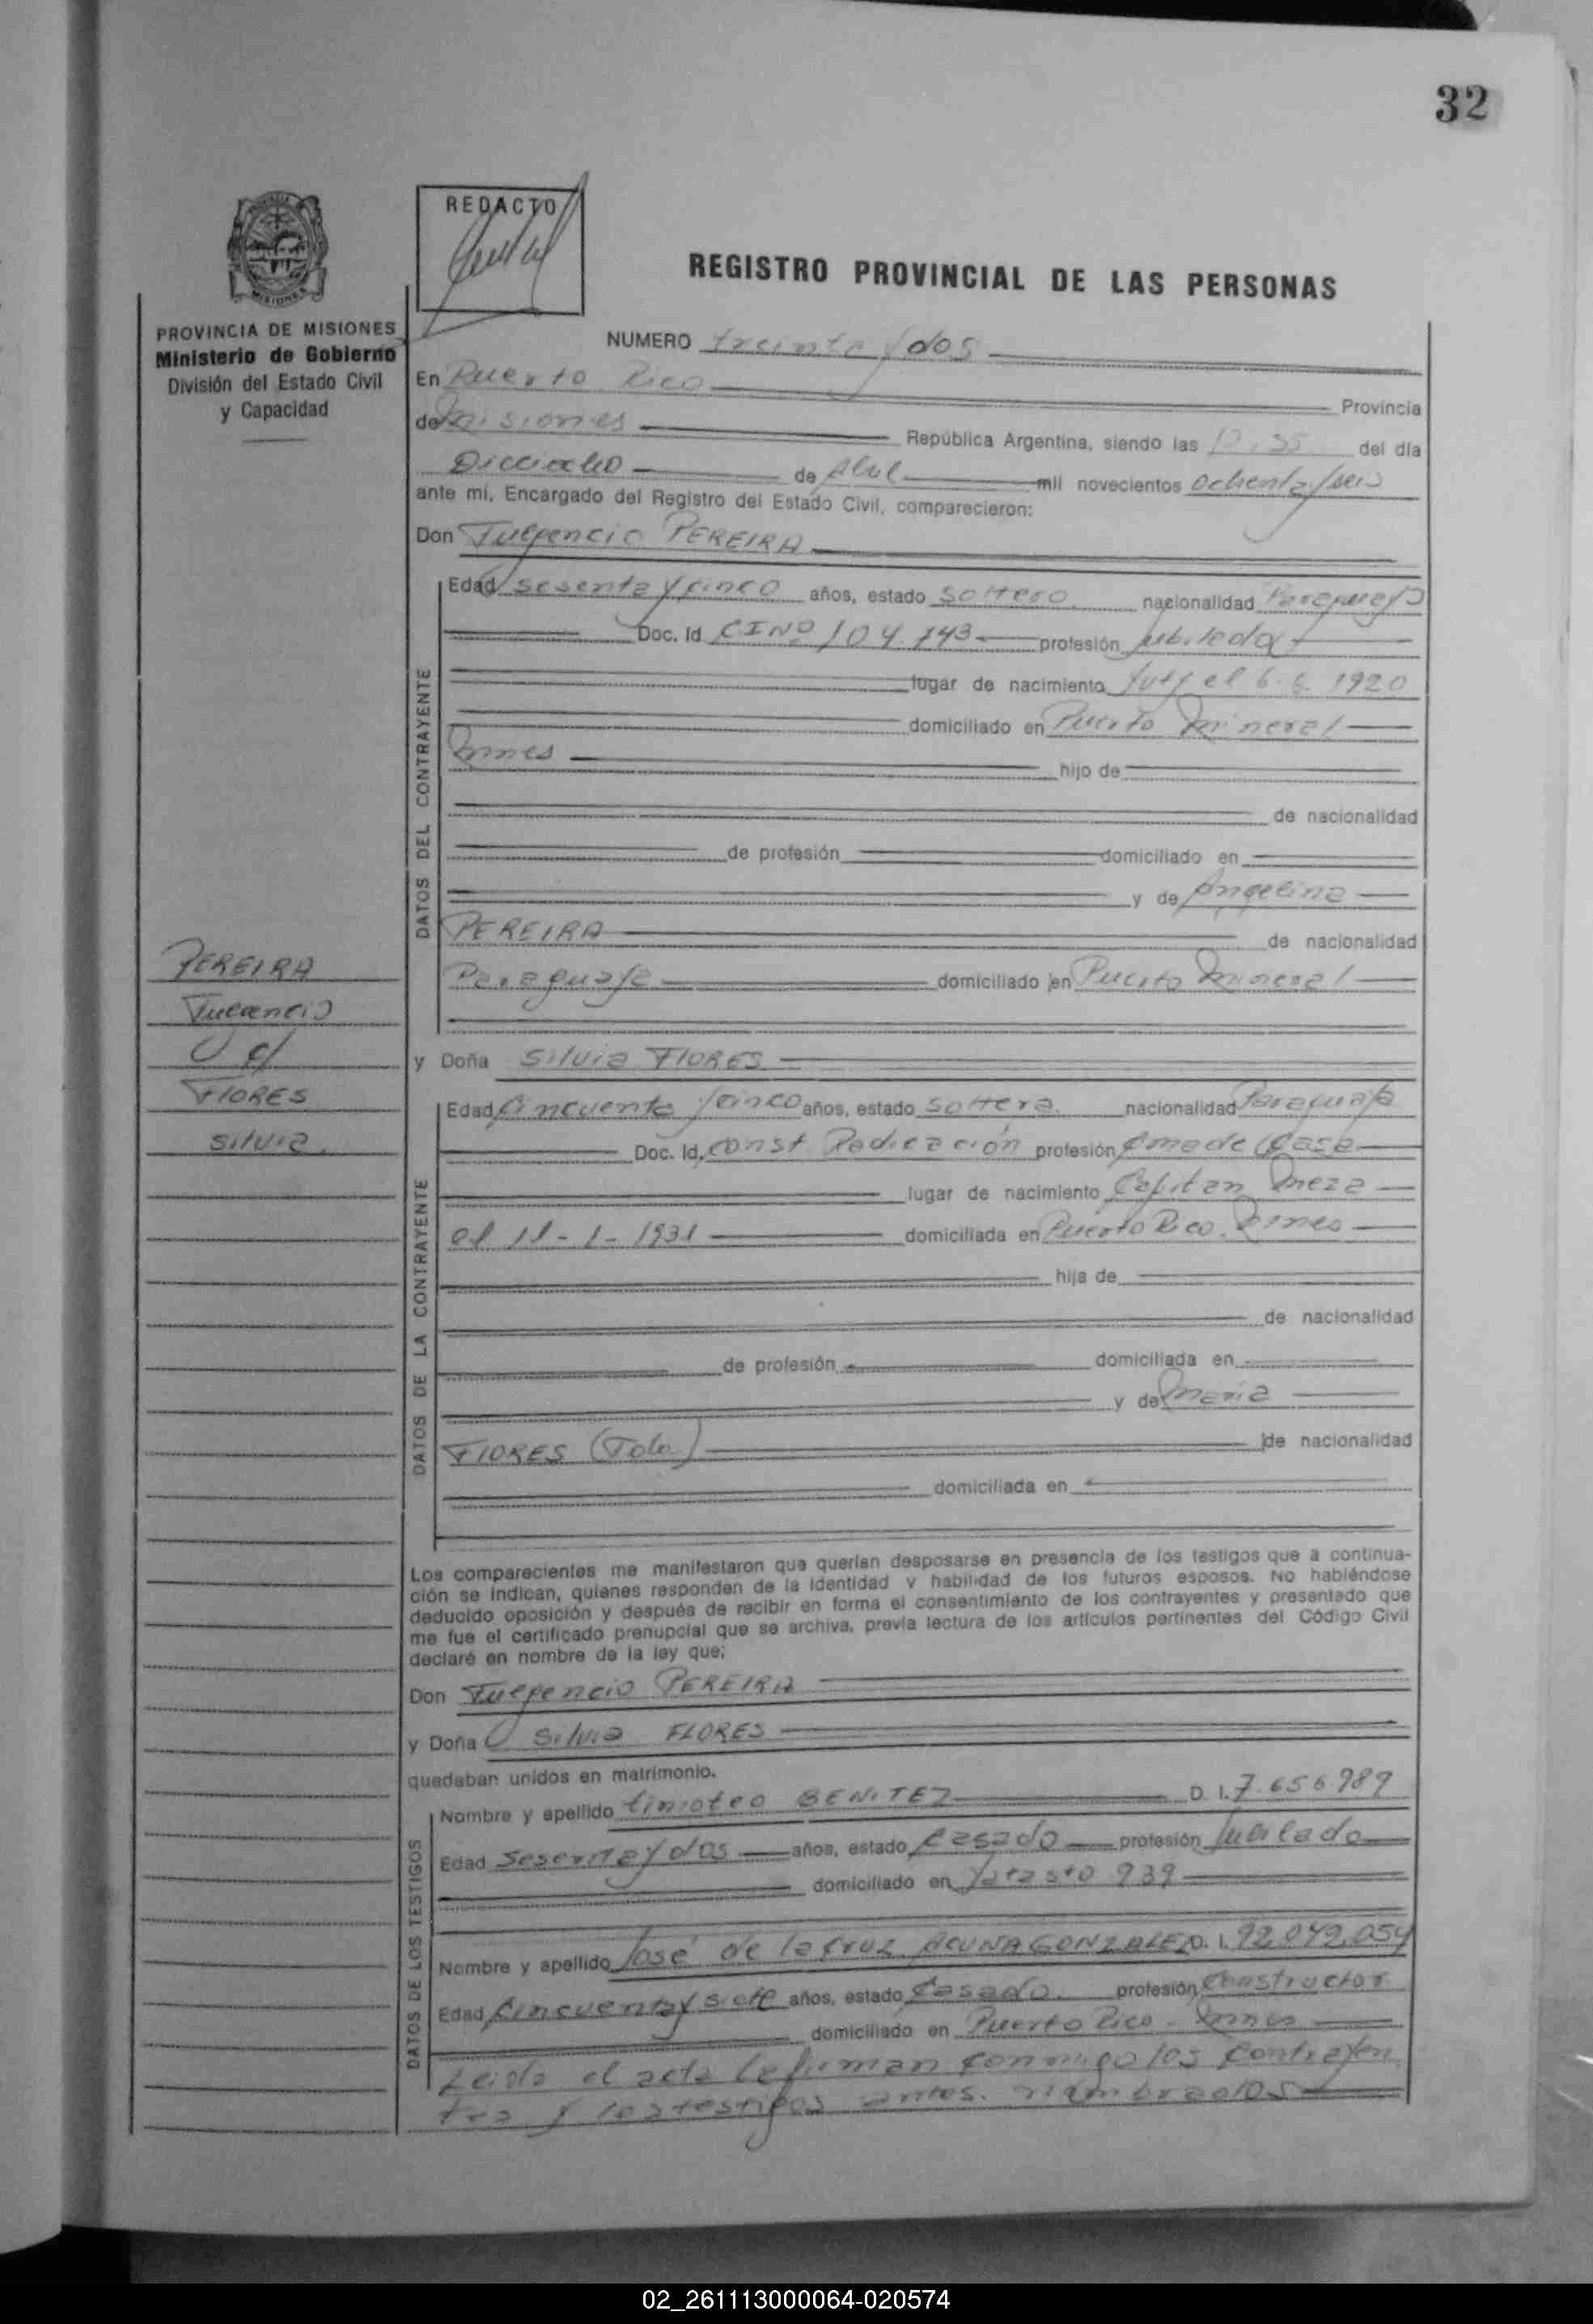 32
REDACTO
REGISTRO PROVINCIAL DE LAS PERSONAS
PROVINCIA DE MISIONES
Ministerio de Gobierno
División del Estado Civil
y Capacidad
NUMERO treinta y dos
En Puerto Rico Provincia
de Misiones República Argentina, siendo las del día
Dieciocho de Abril mil novecientos ochenta y seis
ante mí, Encargado del Registro del Estado Civil, comparecieron:
Don Fulgencio PEREIRA
Edad sesenta y cinco años, estado soltero nacionalidad Paraguayo
Doc. Id CI Nº 104.743 profesión jubilado
lugar de nacimiento Yuty el 6.6.1920
domiciliado en Puerto Mineral
Mnes hijo de
de nacionalidad
de profesión domiciliado en
y de Angelina
PEREIRA de nacionalidad
Paraguaya domiciliado en Puerto Mineral
PEREIRA
Fulgencio
c/
FLORES
Silvia
y Doña Silvia FLORES
Edad Cincuenta y cinco años, estado soltera nacionalidad Paraguaya
Doc. Id. Const Radicación profesión Ama de Casa
lugar de nacimiento Capitan Meza
el 11-1-1931 domiciliada en Puerto Rico. Mnes
hija de
de nacionalidad
de profesión domiciliada en
y de Maria
FLORES (Fda) de nacionalidad
domiciliada en
DATOS DEL CONTRAYENTE
DATOS DE LA CONTRAYENTE
Los comparecientes me manifestaron que querían desposarse en presencia de los testigos que a continua-
ción se indican, quienes responden de la identidad y habilidad de los futuros esposos. No habiéndose
deducido oposición y después de recibir en forma el consentimiento de los contrayentes y presentado que
me fue el certificado prenupcial que se archiva, previa lectura de los artículos pertinentes del Código Civil
declaré en nombre de la ley que;
Don Fulgencio PEREIRA
y Doña Silvia FLORES
quedaban unidos en matrimonio.
Nombre y apellido timoteo BENITEZ D. I. 7.656.989
Edad Sesenta y dos años, estado Casado profesión Jubilado
domiciliado en Yatasto 939
Nombre y apellido José de la Cruz ACUÑA GONZALEZ D. I. 92.042.054
Edad Cincuenta y siete años, estado Casado. profesión Constructor
domiciliado en Puerto Rico - Mnes
DATOS DE LOS TESTIGOS
Leida el acta la firman conmigo los contrayen
tes y los testigos antes. nombrados
02_261113000064-020574